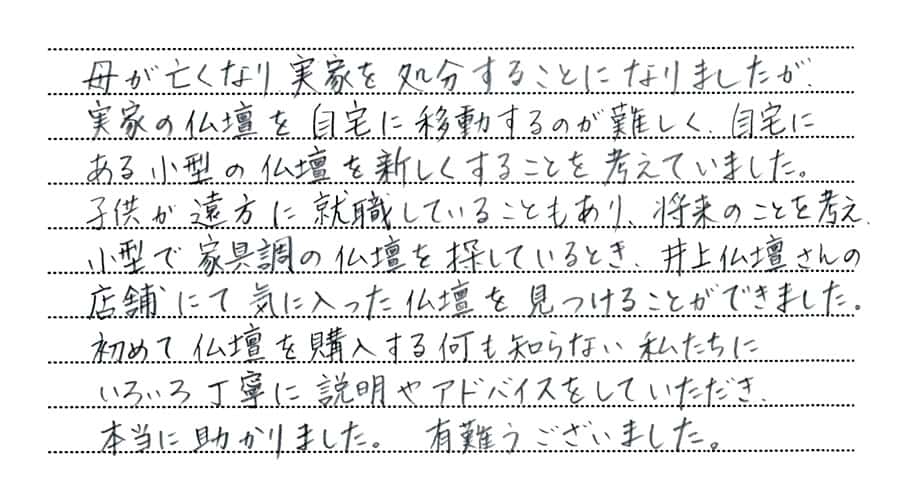 母が亡くなり実家を処分することになりましたが、
実家の仏壇を自宅に移動するのが難しく、自宅に
ある小型の仏壇を新しくすることを考えていました。
子供が遠方に就職していることもあり、将来のことを考え、
小型で家具調の仏壇を探しているとき、井上仏壇さんの
店舗にて気に入った仏壇を見つけることができました。
初めて仏壇を購入する何も知らない私たちに
いろいろ丁寧に説明やアドバイスをしていただき、
本当に助かりました。 有難うございました。